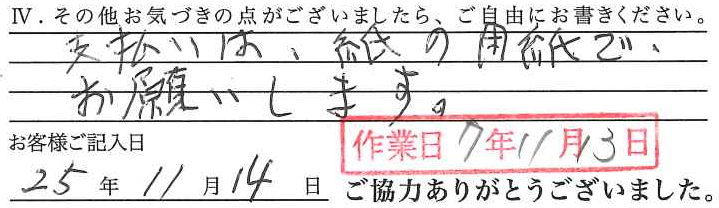 Ⅳ．その他お気づきの点がございましたら、ご自由にお書きください。
支払いは、紙の用紙で、
お願いします。
お客様ご記入日
作業日 7年11月13日
25年11月14日 ご協力ありがとうございました。